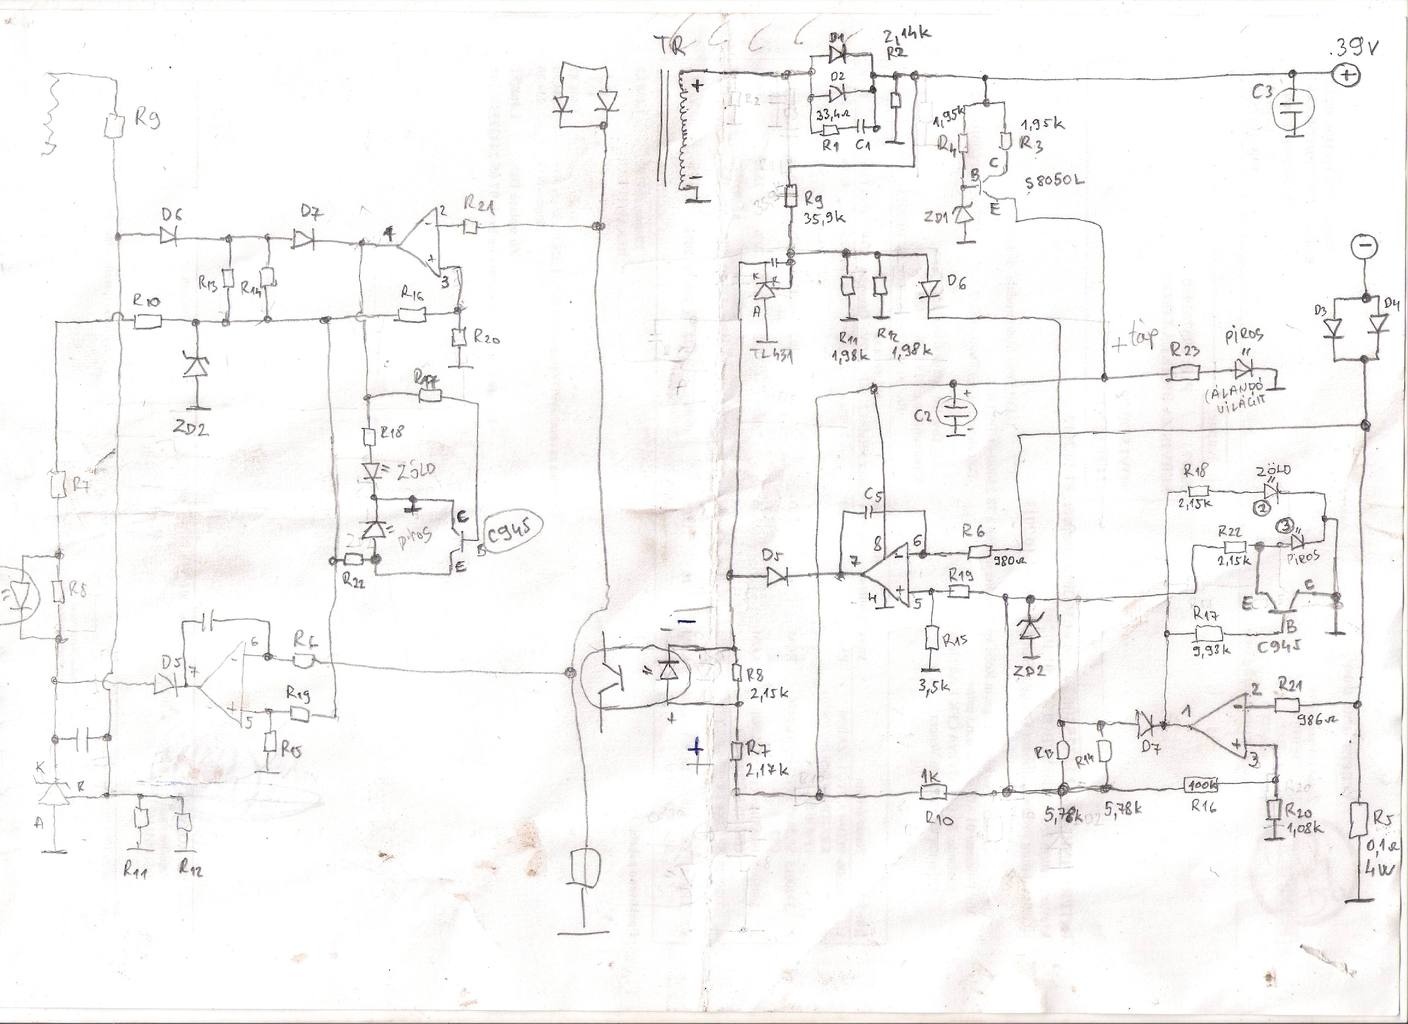 TR
+
D1
D2
33,4Ω
R1
C1
2,14k
R2
39V
+
C3
1,95k
R4
1,95k
R3
C
B
E
S8050L
ZD1
R9
35,9k
K
R
A
TL431
R11
1,98k
R12
1,98k
D6
+ táp
R23
PIROS
(ÁLANDÓ
VILÁGÍT
C2
+
-
−
D3
D4
C5
D5
7
8
6
-
+
5
4
R6
980Ω
R19
R15
3,5k
ZD2
R18
2,15k
ZÖLD
2
R22
2,15k
3
PIROS
E
C
B
C945
R17
9,93k
R21
986Ω
D7
1
2
-
+
3
R13
5,78k
R14
5,78k
100k
R16
R20
1,08k
R5
0,1Ω
4W
1k
R10
R8
2,15k
R7
2,17k
−
+
+
R9
D6
D7
R13
R14
R10
R16
R20
R21
2
-
+
3
ZD2
R17
R18
ZÖLD
piros
R22
E
B
E
C945
R7
R8
D5
7
6
-
+
5
R6
R19
R15
K
R
A
R11
R12